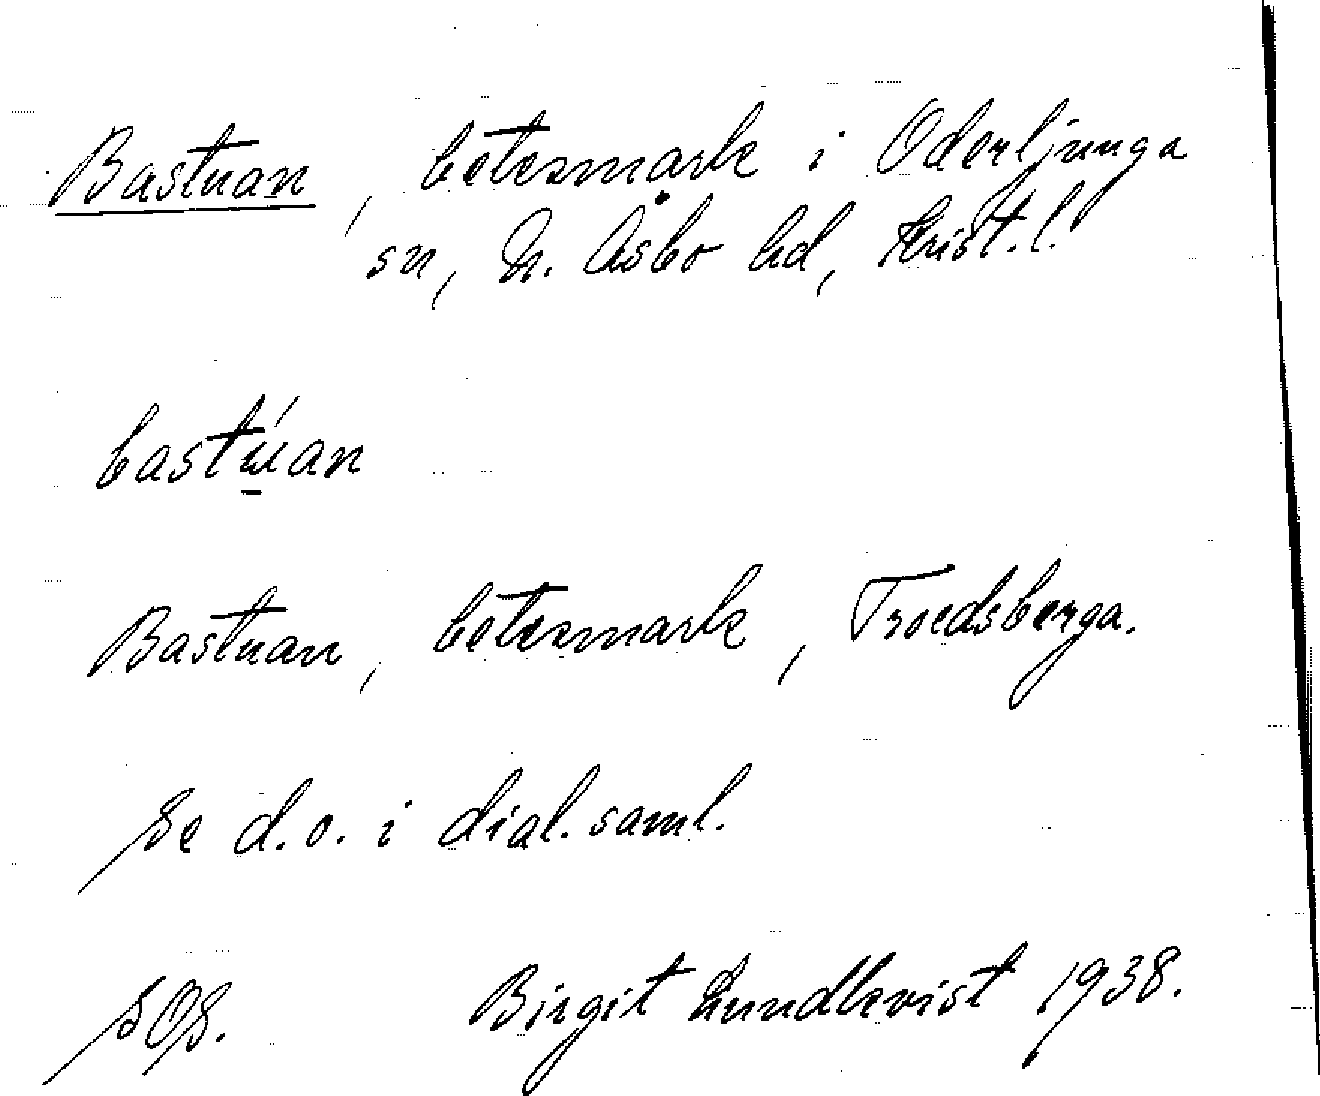 Bastuan, betesmark i Oderljunga
sn, N. Åsbo hd, Krist. l.
bastú̱an
Bastuan, betesmark, Troedsberga.
Se d.o. i dial. saml.
SOS. Birgit Lundkvist 1938.